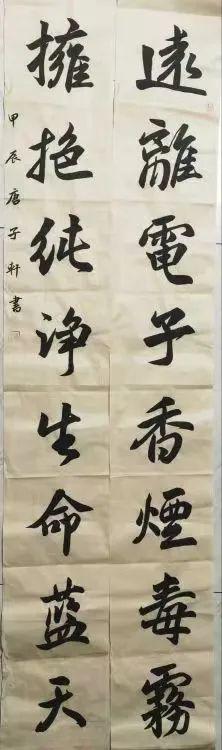 遠離電子香煙毒霧
擁抱纯净生命蓝天
甲辰唐子軒書